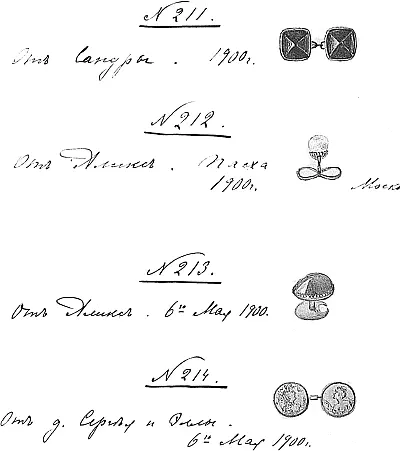 № 211.
Отъ Сандры. 1900г.
№ 212.
Отъ Аликсъ. Пасха
1900г. Моск
№ 213.
Отъ Аликсъ. 6го Мая 1900.
№ 214.
Отъ д. Сергѣя и Эллы.
6го Мая 1900г.